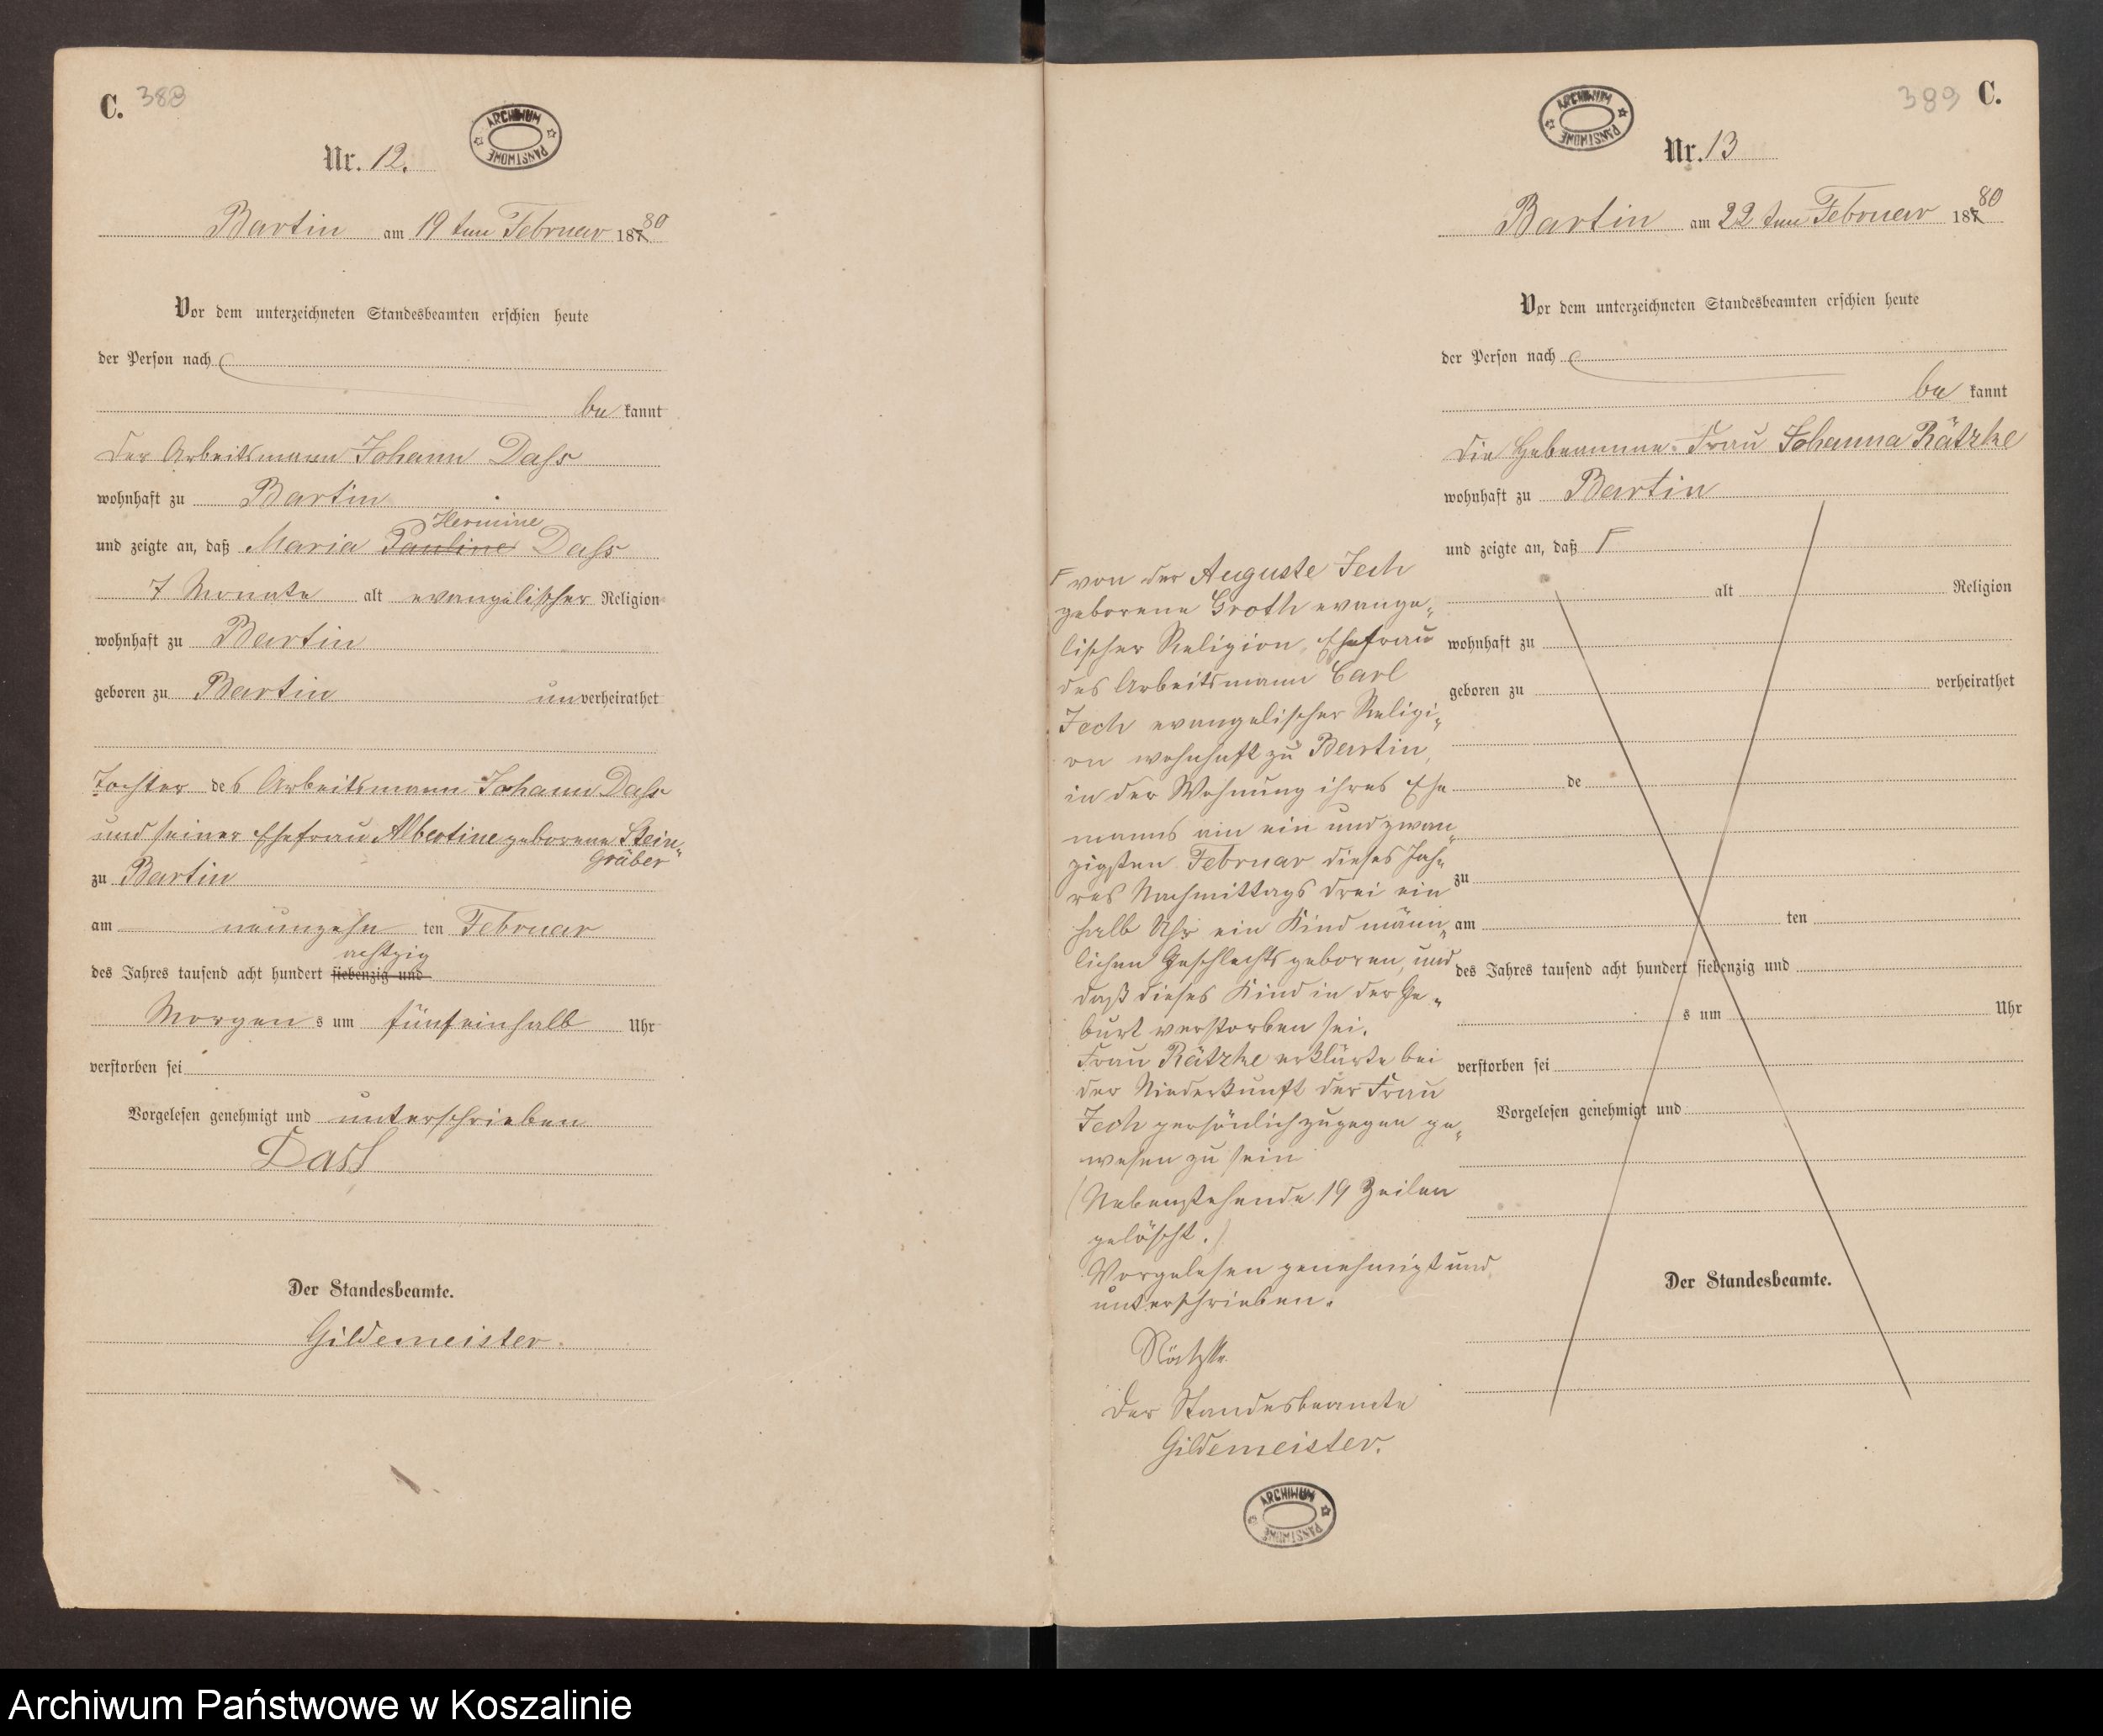 C. 388
ARCHIWUM PAŃSTWOWE
Nr. 12.
Bartin am 19 ten Februar 18780
Vor dem unterzeichneten Standesbeamten erschien heute
der Person nach
be kannt
der Arbeitsmann Johann Dass
wohnhaft zu Bartin
Hermine
und zeigte an, daß Maria Pauline Dass
7 Monate alt evangelischer Religion
wohnhaft zu Bartin
geboren zu Bartin unverheirathet
Tochter des Arbeitsmann Johann Dass
und seiner Ehefrau Albertine geborene Stein-
Gräber
zu Bartin
am neunzehn ten Februar
achtzig
des Jahres tausend acht hundert siebenzig und
Morgen s um fünf einhalb Uhr
verstorben sei
Vorgelesen genehmigt und unterschrieben
Dass
Der Standesbeamte.
Gildemeister.
389 C.
ARCHIWUM PAŃSTWOWE
Nr. 13
Bartin am 22 ten Februar 18780
Vor dem unterzeichneten Standesbeamten erschien heute
der Person nach
be kannt
die Hebeamme-Frau Johanna Rätzke
wohnhaft zu Bartin
und zeigte an, daß Γ
alt Religion
wohnhaft zu
geboren zu verheirathet
de
zu
am ten
des Jahres tausend acht hundert siebenzig und
s um Uhr
verstorben sei
Vorgelesen genehmigt und
Der Standesbeamte.
Γ von der Auguste Jech
geborene Groth evange-
lischer Religion, Ehefrau
des Arbeitsmann Carl
Jech evangelischer Religi-
on wohnhaft zu Bartin,
in der Wohnung ihres Ehe
manns am ein und zwan-
zigsten Februar dieses Jah-
res Nachmittags drei ein
halb Uhr ein Kind männ-
lichen Geschlechts geboren, und
daß dieses Kind in der Ge-
burt verstorben sei.
Frau Rätzke erklärte bei
der Niederkunft der Frau
Jech persönlich zugegen ge-
wesen zu sein
(Nebenstehende 19 Zeilen
gelöscht.)
Vorgelesen genehmigt und
unterschrieben.
Rätzke
Der Standesbeamte
Gildemeister.
ARCHIWUM PAŃSTWOWE
Archiwum Państwowe w Koszalinie